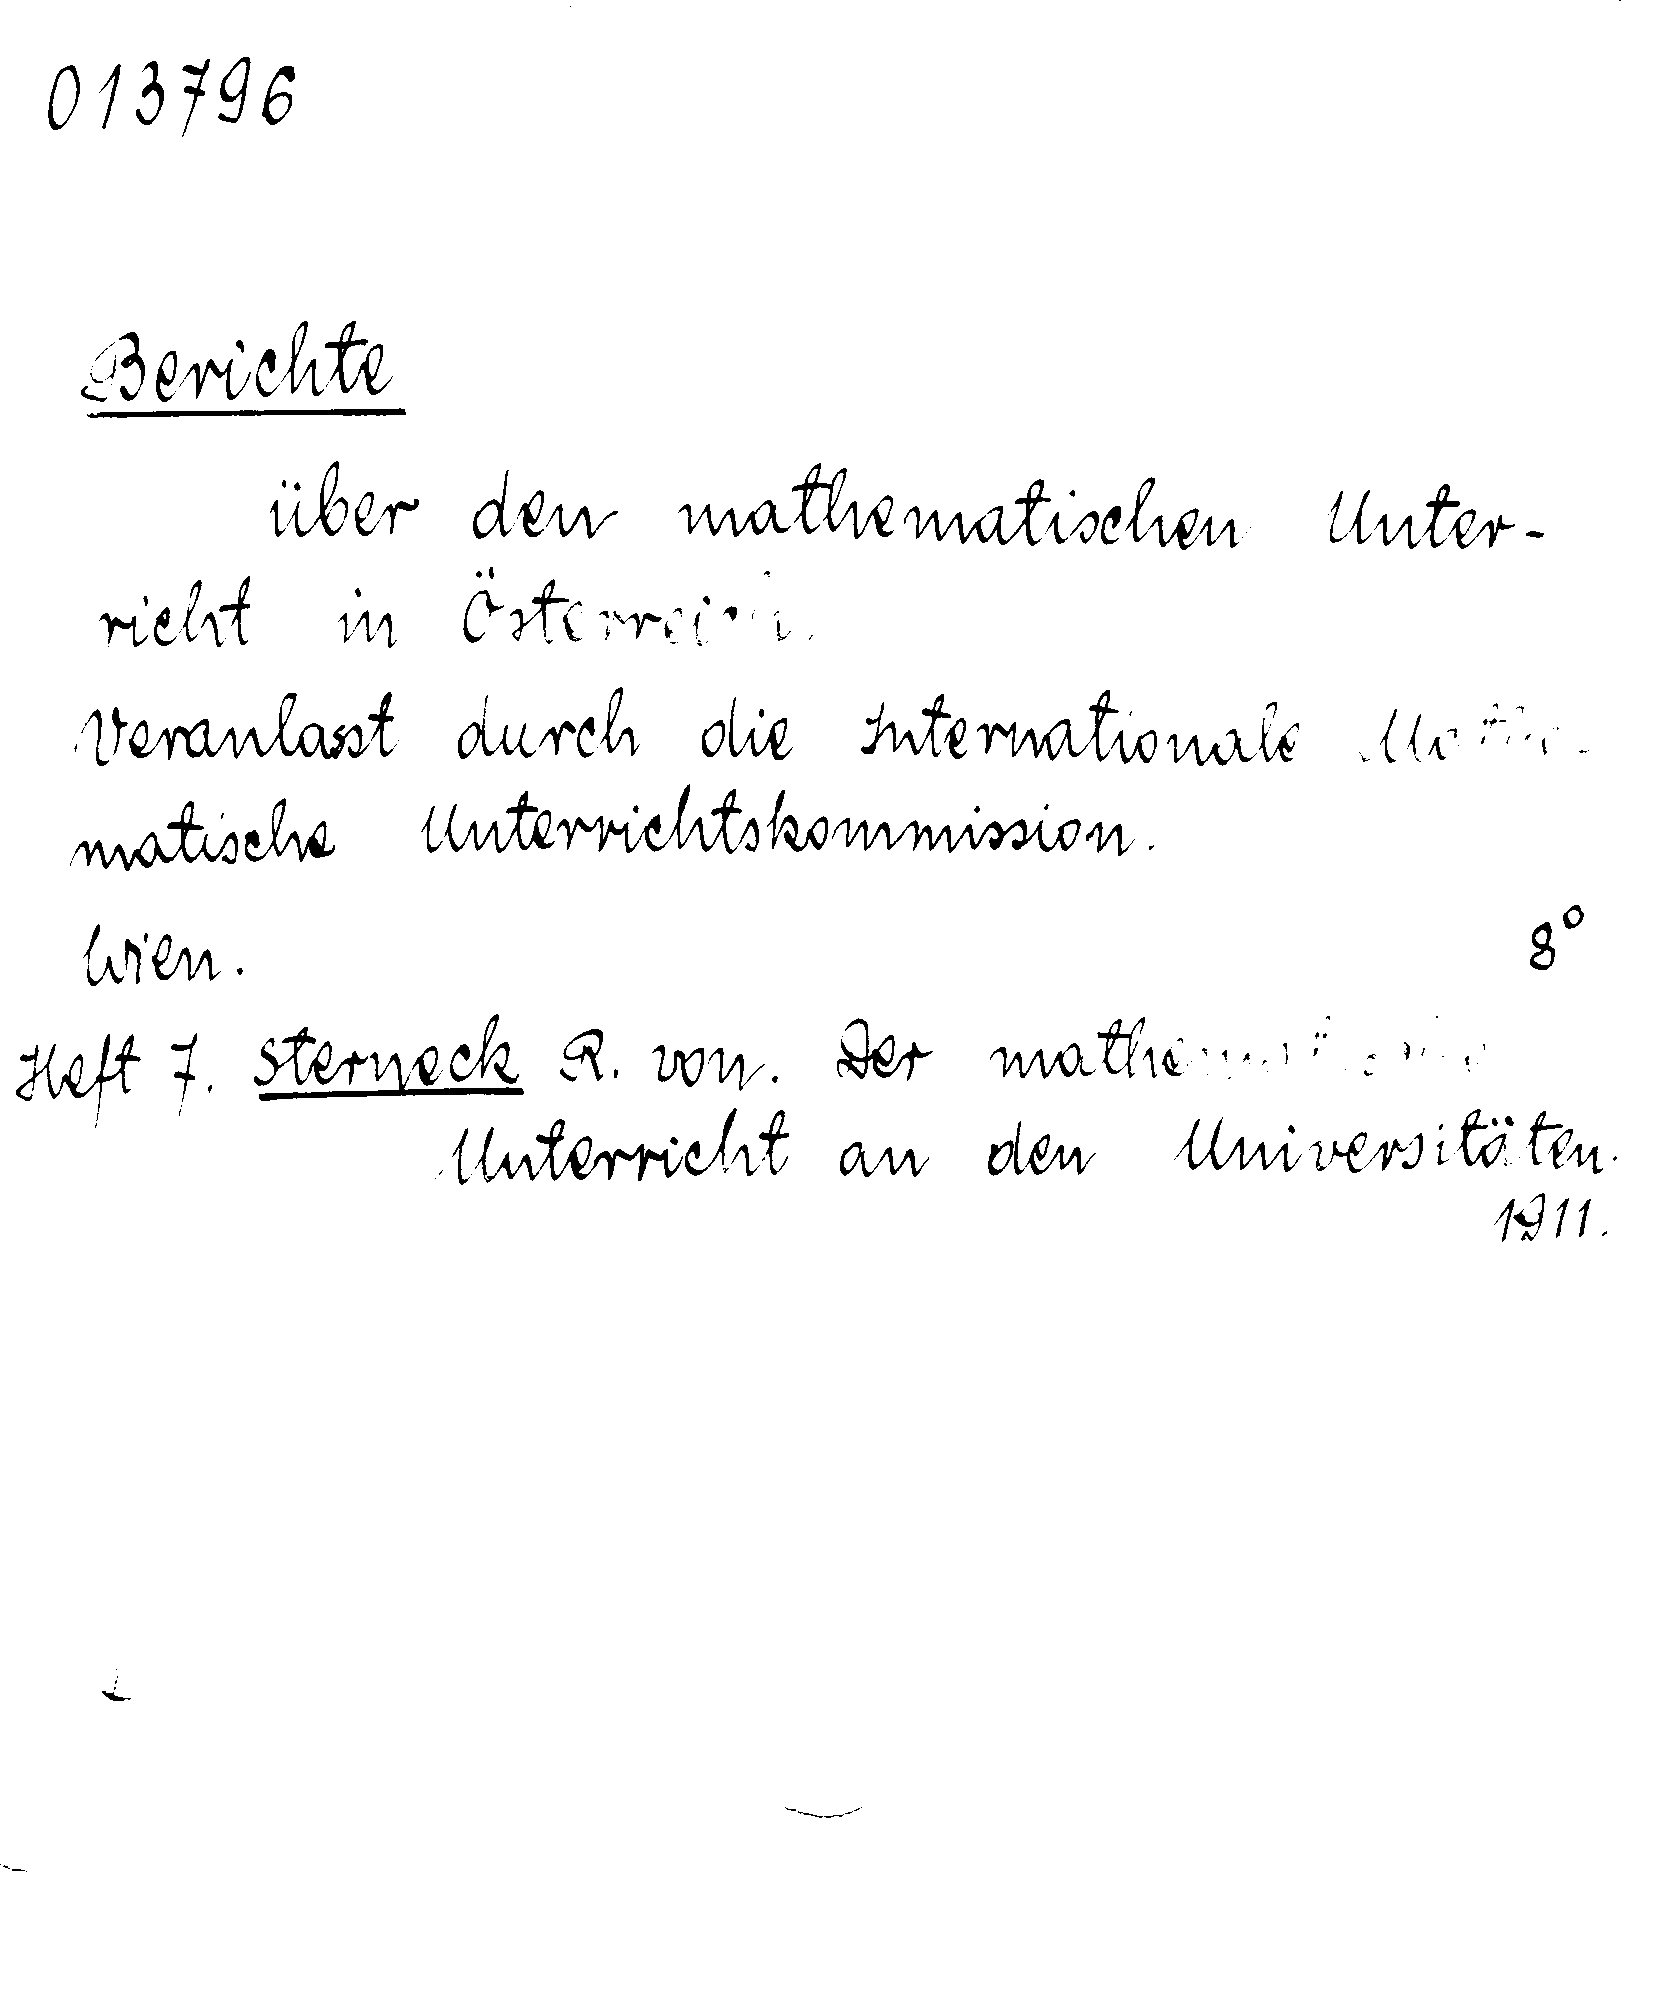 013796
Berichte
über den mathematischen Unter-
richt in Österreich.
Veranlasst durch die Internationale Mathe-
matische Unterrichtskommission.
Wien. 8°
Heft 7. Sterneck R. von. Der mathematische
Unterricht an den Universitäten.
1911.